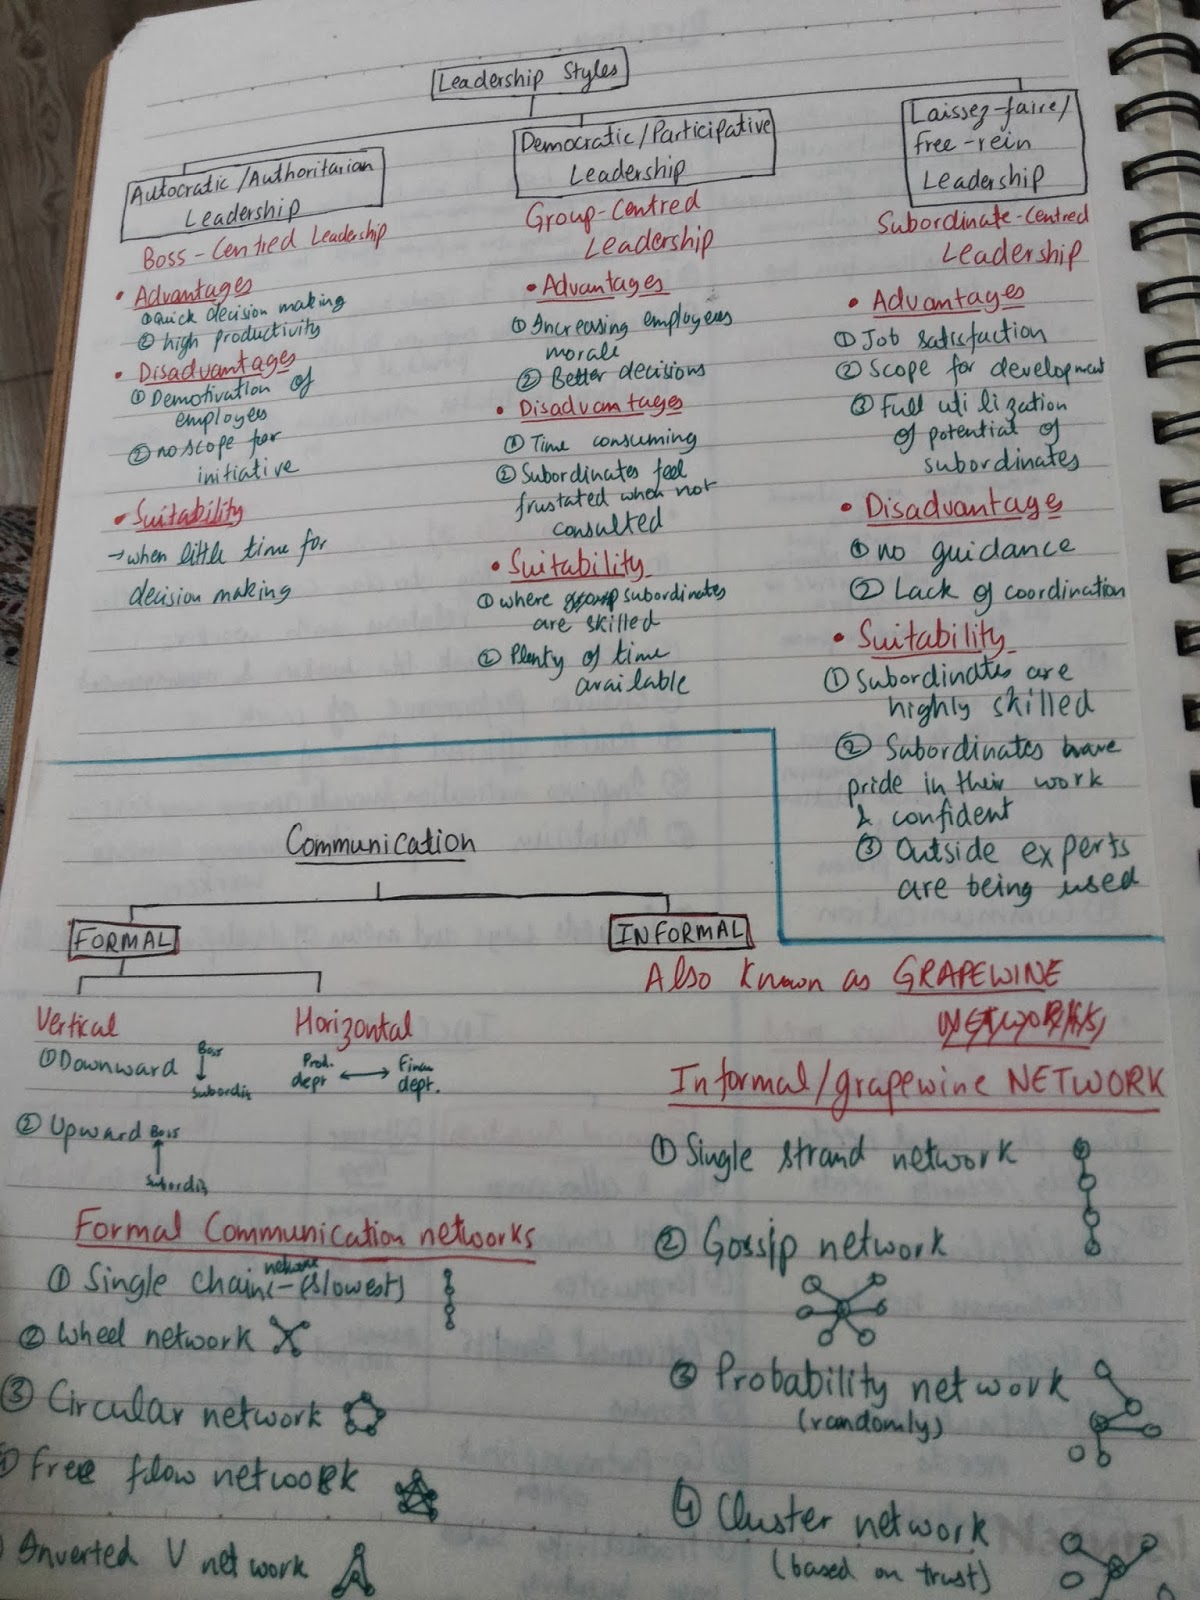 Leadership Styles
Autocratic/Authoritarian
Leadership
Boss-Centred Leadership
• Advantages
① Quick decision making
② high productivity
• Disadvantages
① Demotivation of
employees
② no scope for
initiative
• Suitability
→ when little time for
decision making
Democratic/Participative
Leadership
Group-Centred
Leadership
• Advantages
① Increasing employees
morale
② Better decisions
• Disadvantages
① Time consuming
② Subordinates feel
frustated when not
consulted
• Suitability
① where subordinates
are skilled
② Plenty of time
available
Laissez-faire/
free-rein
Leadership
Subordinate-Centred
Leadership
• Advantages
① Job satisfaction
② Scope for development
③ Full utilization
of potential of
subordinates
• Disadvantages
① no guidance
② Lack of coordination
• Suitability
① Subordinates are
highly skilled
② Subordinates have
pride in their work
& confident
③ Outside experts
are being used
Communication
FORMAL
Vertical
① Downward
Boss
Subordis
② Upward Boss
Subordis
Horizontal
Prod. Finan
dept dept.
Formal Communication networks
① Single chain network - (slowest)
② Wheel network
③ Circular network
free flow network
Inverted V network
INFORMAL
Also known as GRAPEWINE
Informal/grapewine NETWORK
① Single strand network
② Gossip network
③ Probability network
(randomly)
④ Cluster network
(based on trust)